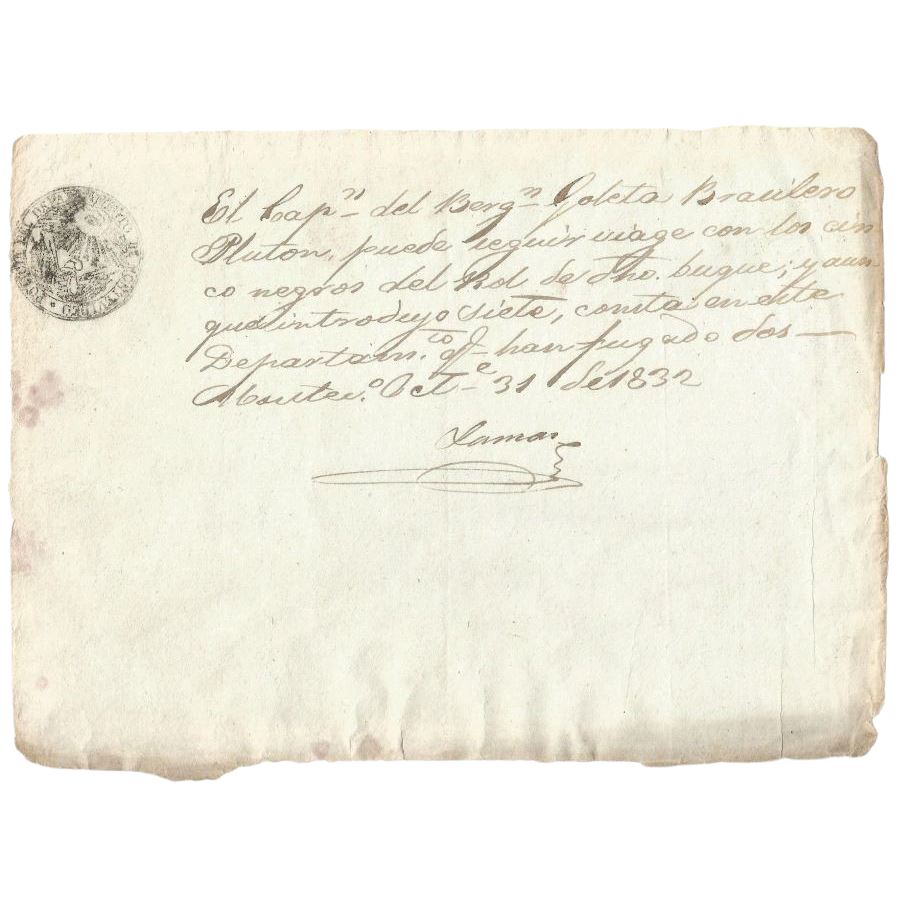 El Cap.n del Berg.n Goleta Brasilero
Pluton, puede seguir viage con los cin
co negros del Rol de dho. buque; y aun-
que introdujo siete, consta en este
Departam.to q.e han fugado dos—
Montev.o Oct.e 31 de 1832
Lamas